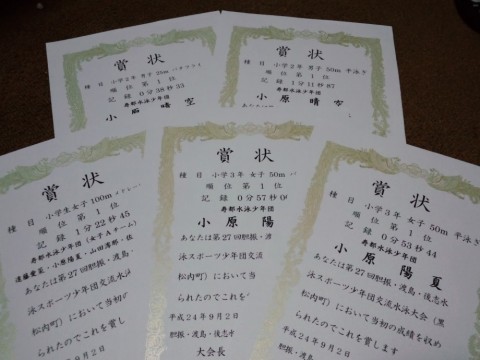 賞状
種目 小学2年 男子 25m バタフライ
順位 第1位
記録 0分58秒33
寿都水泳少年団
小原 晴空
賞状
種目 小学2年 男子 50m 平泳ぎ
順位 第1位
記録 1分11秒
寿都水泳少年団
小原 晴空
賞状
種目 小学生女子 100m メドレー
順位 第1位
記録 1分22秒45
寿都水泳少年団(女子Aチーム)
遠藤愛菜・小原陽夏・山田
あなたは第27回胆振・渡
泳スポーツ少年団交流水泳
松内町)において当初
られたのでこれを賞し
平成24年9月2日
賞状
種目 小学3年 女子 50m
順位 第1位
記録 0分57秒
寿都水泳少年団
小原 陽
あなたは第27回胆振・渡
泳スポーツ少年団交流
松内町)において当
られたのでこれを
平成24年9月2
胆振・渡島・後志水
大会長
賞状
種目 小学3年 女子 50m 平泳ぎ
順位 第1位
記録 0分53秒44
寿都水泳少年団
小原 陽夏
あなたは第27回胆振・渡島・後志水
泳スポーツ少年団交流水泳大会(黒
松内町)において当初の成績を収め
られたのでこれを賞します
平成24年9月2日
胆振・渡島・後志水